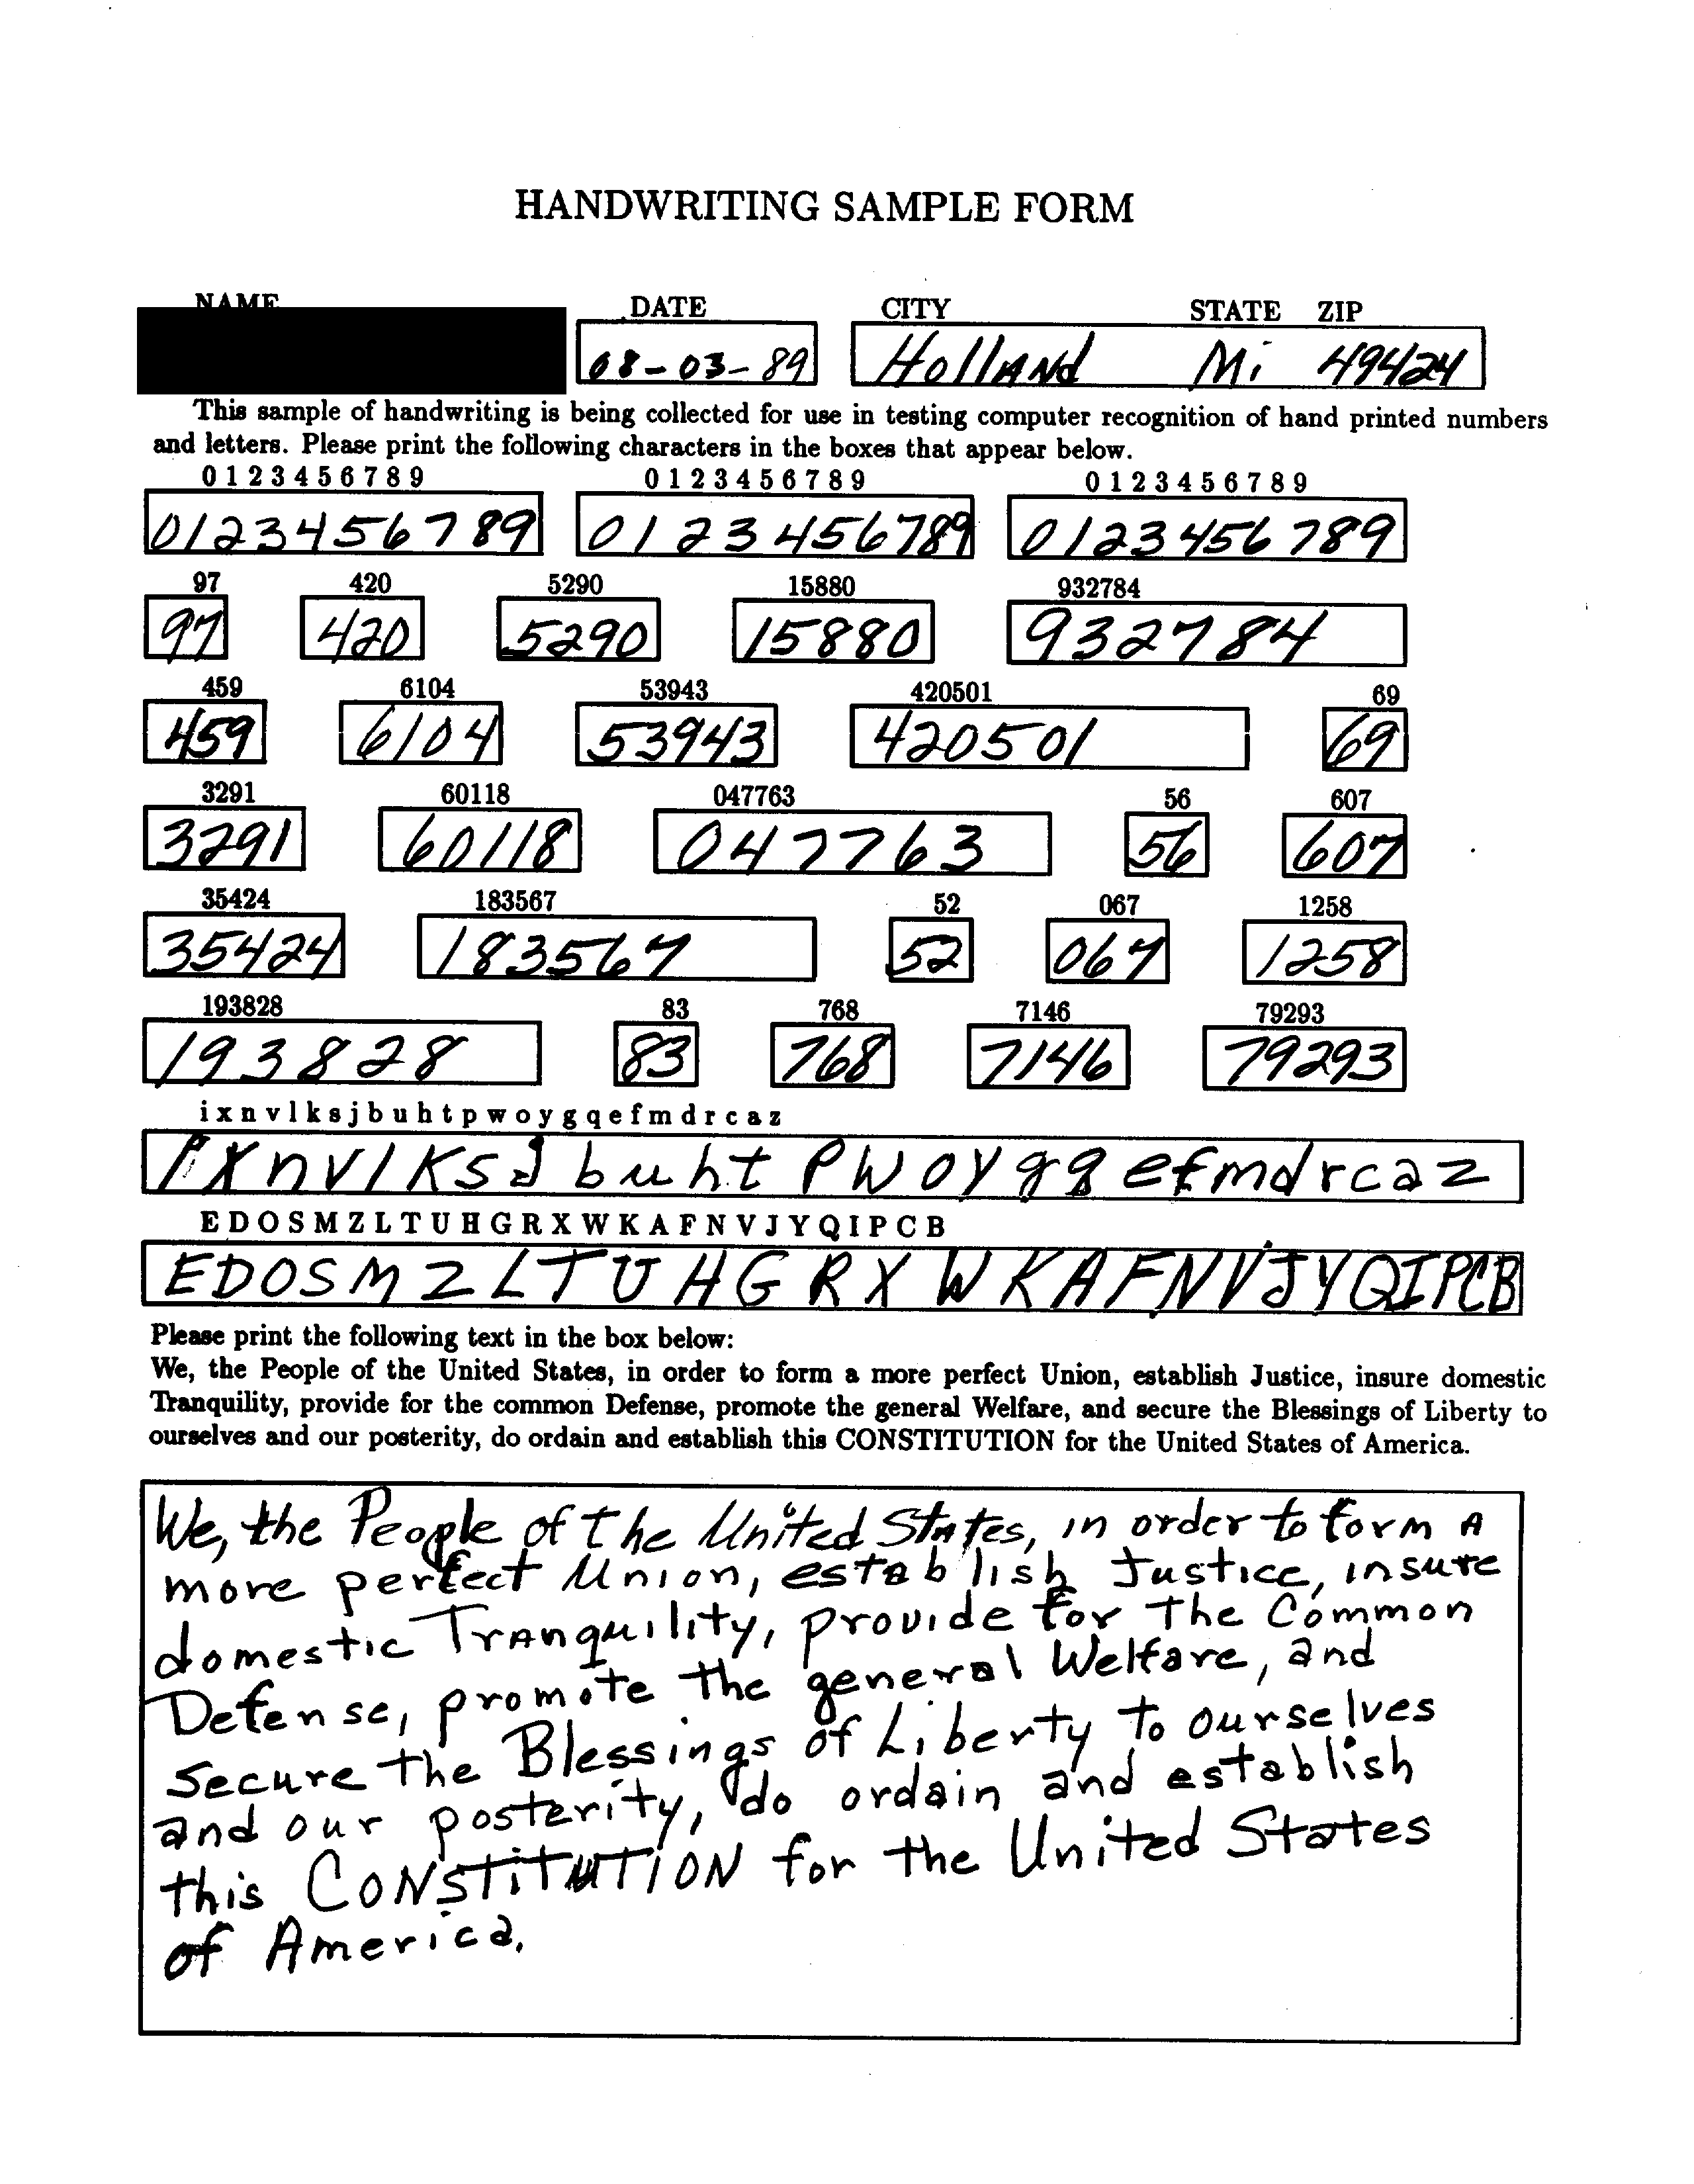 HANDWRITING SAMPLE FORM
NAME DATE CITY STATE ZIP
08-03-89 HollANd Mi 49424
This sample of handwriting is being collected for use in testing computer recognition of hand printed numbers
and letters. Please print the following characters in the boxes that appear below.
0 1 2 3 4 5 6 7 8 9 0 1 2 3 4 5 6 7 8 9 0 1 2 3 4 5 6 7 8 9
0123456789 0123456789 0123456789
97 420 5290 15880 932784
97 420 5290 15880 932784
459 6104 53943 420501 69
459 6104 53943 420501 69
3291 60118 047763 56 607
3291 60118 047763 56 607
35424 183567 52 067 1258
35424 183567 52 067 1258
193828 83 768 7146 79293
193828 83 768 7146 79293
i x n v l k s j b u h t p w o y g q e f m d r c a z
i x n v l k s j b u h t p w o y g q e f m d r c a z
E D O S M Z L T U H G R X W K A F N V J Y Q I P C B
E D O S M Z L T U H G R X W K A F N V J Y Q I P C B
Please print the following text in the box below:
We, the People of the United States, in order to form a more perfect Union, establish Justice, insure domestic
Tranquility, provide for the common Defense, promote the general Welfare, and secure the Blessings of Liberty to
ourselves and our posterity, do ordain and establish this CONSTITUTION for the United States of America.
We, the People of the United States, in order to form A
more perfect Union, establish Justice, insure
domestic Tranquility, provide for The Common
Defense, promote the general Welfare, and
secure the Blessings of Liberty to ourselves
and our posterity, do ordain and establish
this CONSTiTUTiON for the United States
of America.